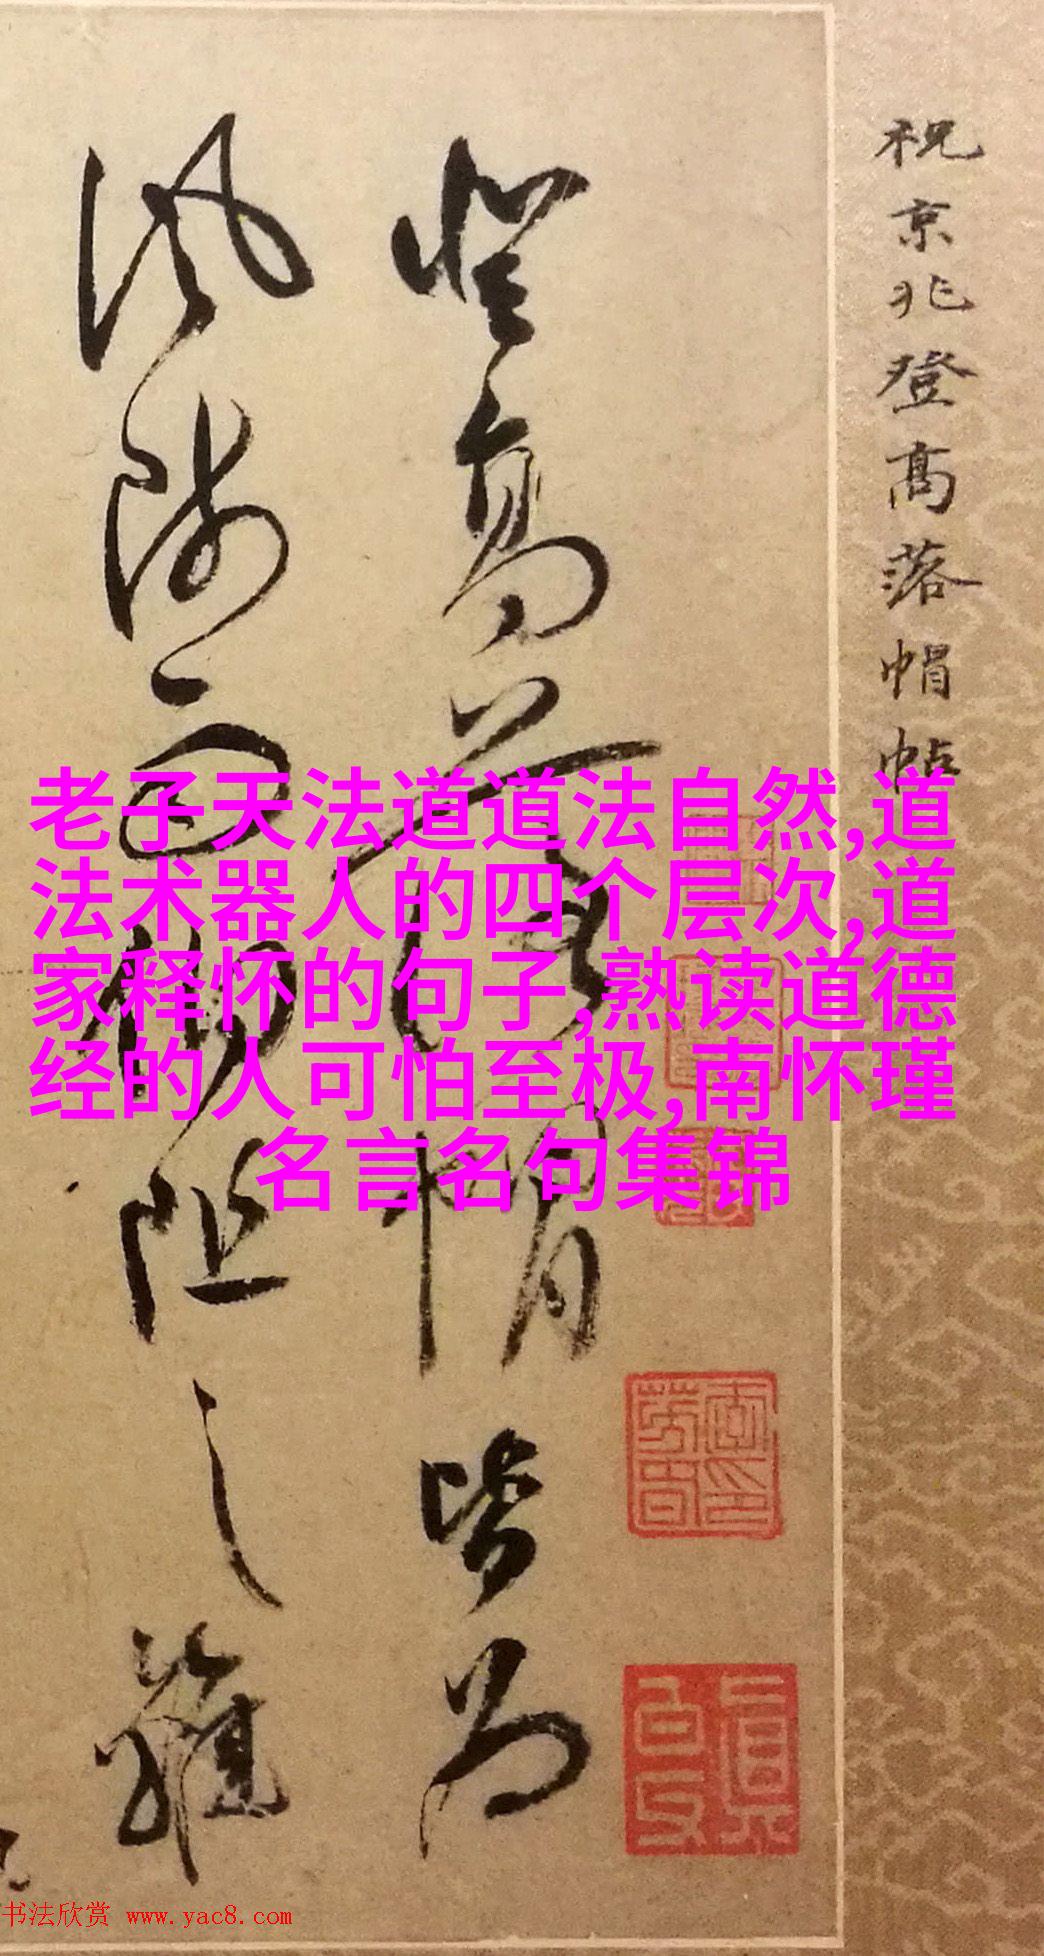 祝京兆登高落帽帖
登高落帽皆為
風雨阻之雖
老子天法道道法自然,道
法术器人的四个层次,道
家释怀的句子,熟读道德
经的人可怕至极,南怀瑾
名言名句集锦
书法欣赏 www.yac8.com